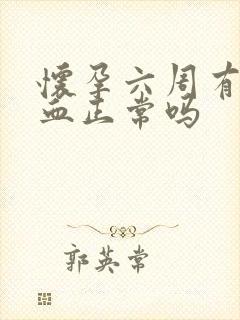 懷孕六周有
血正常吗
郭英常